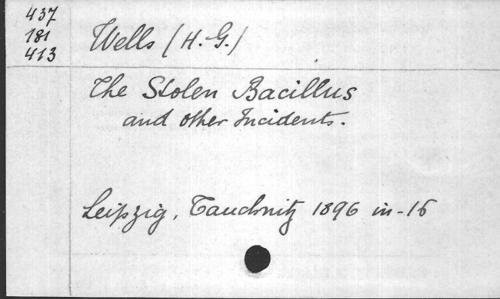 437
181
413
Wells (H. G.)
The Stolen Bacillus
and other Incidents.
Leipzig, Tauchnitz 1896 in-16